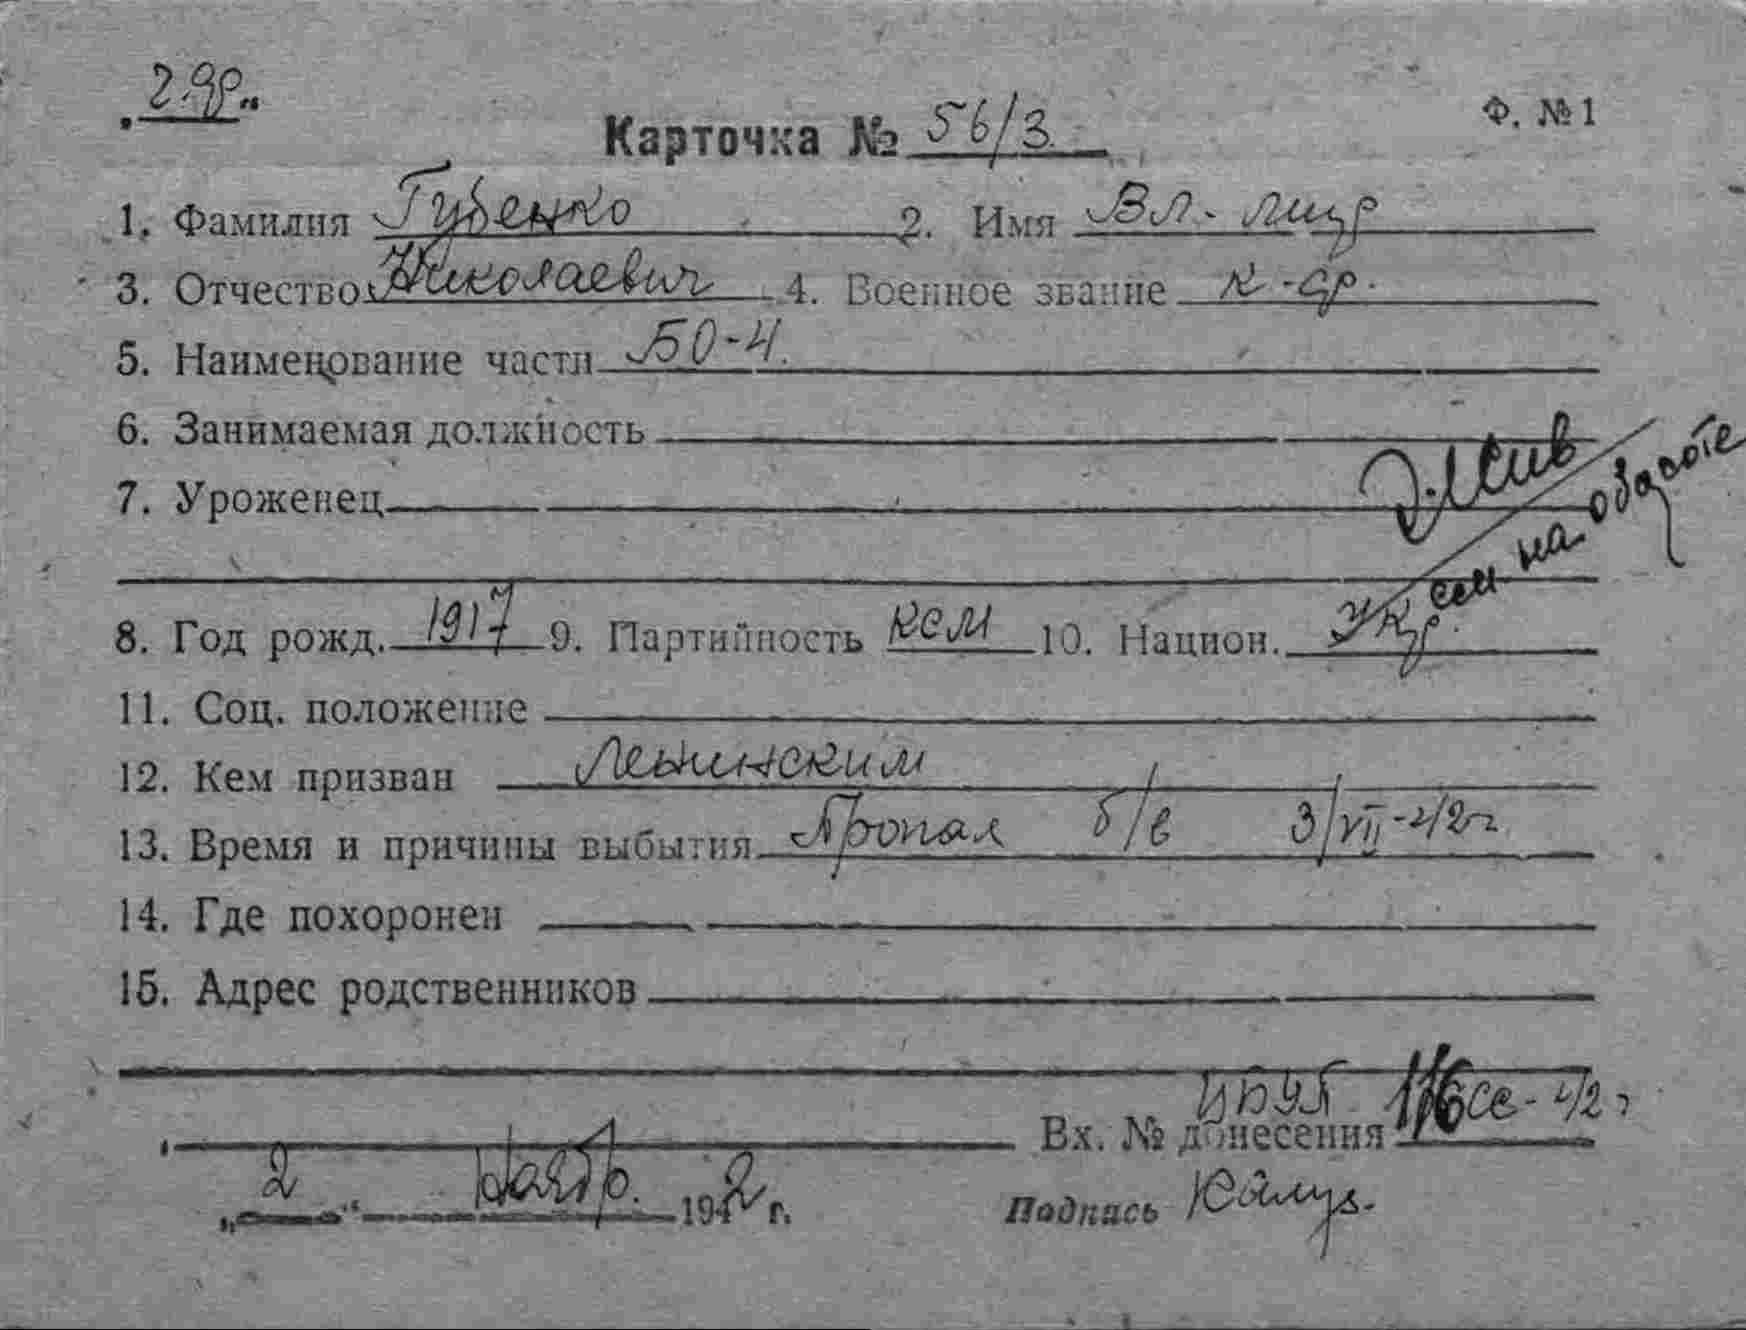 Ф. № 1
Карточка № 56/3
1. Фамилия Губенко 2. Имя Вл-мир
3. Отчество Николаевич 4. Военное звание к-ср.
5. Наименование части БО-4.
6. Занимаемая должность
7. Уроженец
Жив
см на обороте
8. Год рожд. 1917 9. Партийность ксм 10. Национ. Укр.
11. Соц. положение
12. Кем призван Ленинским
13. Время и причины выбытия Пропал б/в 3/VII-42г.
14. Где похоронен
15. Адрес родственников
Вх. № донесения ЦБУП 116сс-42г
„2“ Ноябр. 1942 г. Подпись